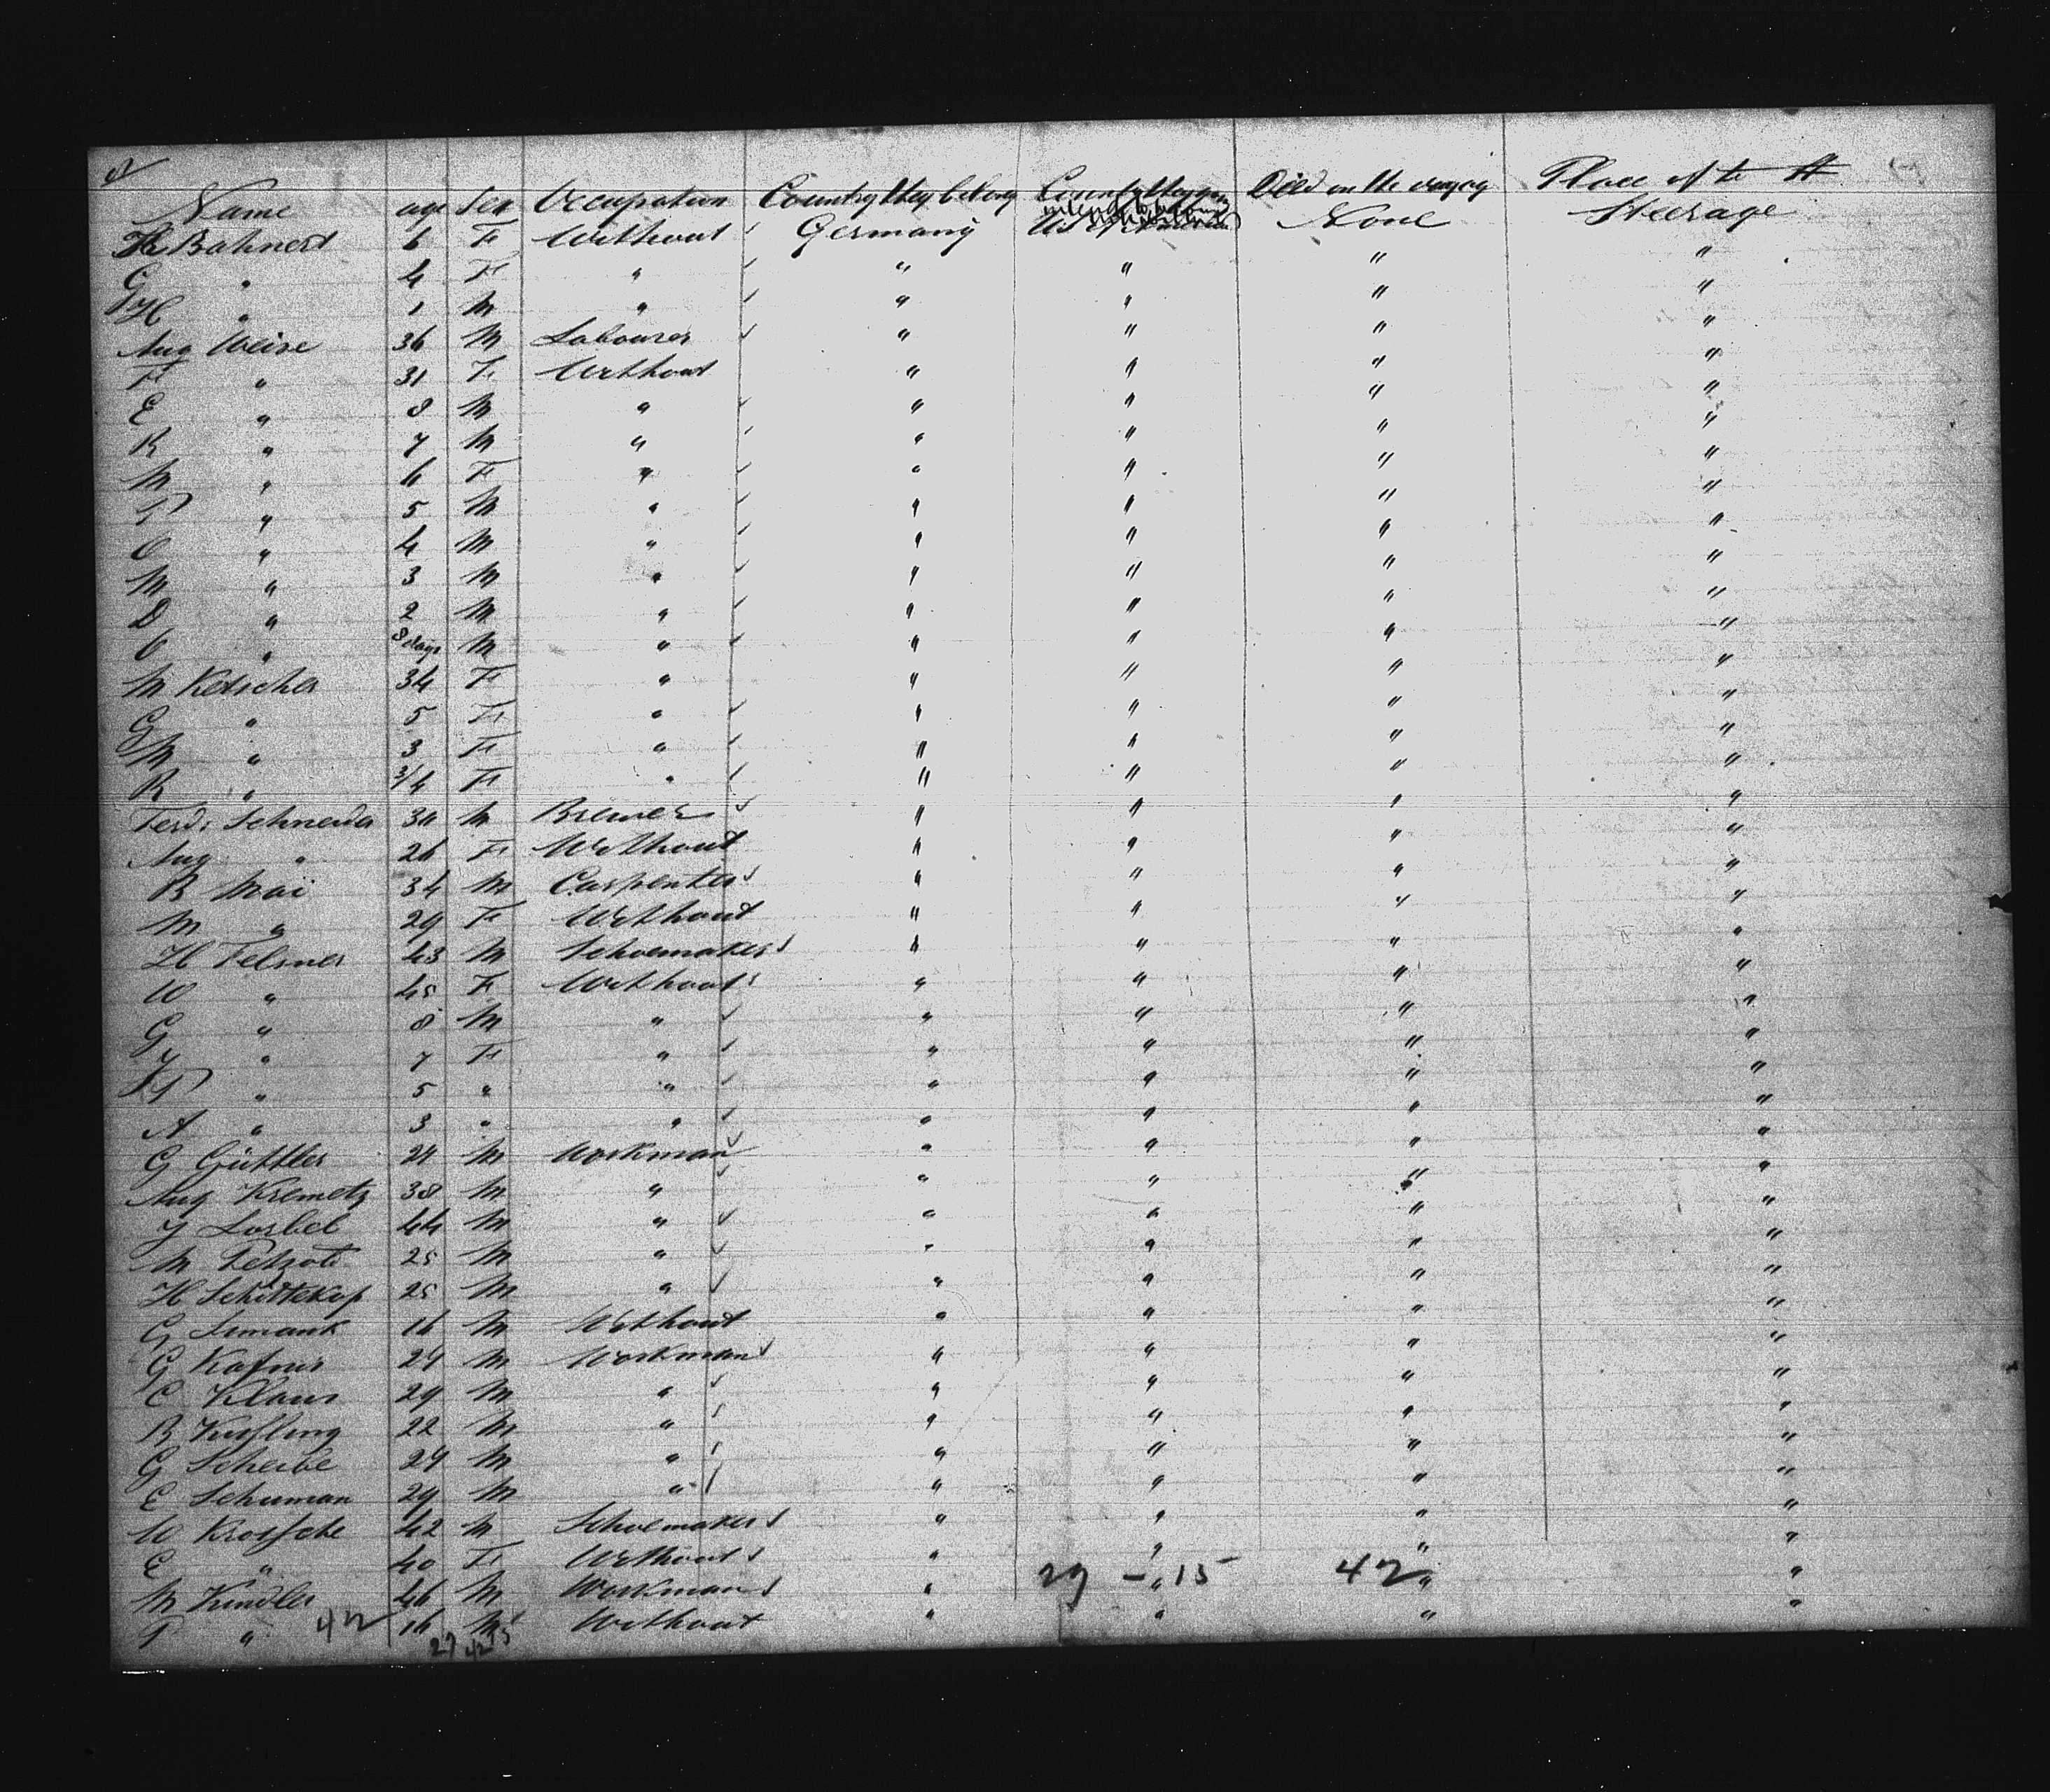 Name age Sex Occupation Country they belong Died on the voyag Place of the
He Bahnert 6 F Without Germany None Steerage
G " 4 F " " " " "
H " 1 M " " " " "
Aug Weise 36 M Labourer " " " "
F " 31 F Without " " " "
E " 8 M " " " " "
K " 7 M " " " " "
M " 6 F " " " " "
P " 5 M " " " " "
O " 4 M " " " " "
M " 3 M " " " " "
D " 2 M " " " " "
O " 8 days M " " " " "
M Ketscher 34 F " " " " "
G " 5 F " " " " "
M " 3 F " " " " "
R " 3/4 F " " " " "
Ferd: Schneider 30 M Brewer " " " "
Aug " 26 F Without " " " "
B Mai 34 M Carpenter " " " "
M " 29 F Without " " " "
H Felsner 43 M Schoemaker " " " "
W " 45 F Without " " " "
G " 8 M " " " " "
J " 7 F " " " " "
P " 5 " " " " " "
A " 3 " " " " " "
G Güttler 24 M Workman " " " "
Aug Kremetz 38 M " " " " "
J Lorbel 44 M " " " " "
M Petzold 25 M " " " " "
H Schöttekop 25 M " " " " "
G 16 M Without " " " "
G 24 M Workman " " " "
C Klaus 29 M " " " " "
B Kiesling 22 M " " " " "
G Scheibe 24 M " " " " "
E Schuman 29 M " " " " "
W Krossche 42 M Schoemaker " " " "
E " 40 F Without " " " "
M Kindler 46 M Workman " 29 - 15 " 42 " "
P " 42 16 M Without " " " "
27 42 15